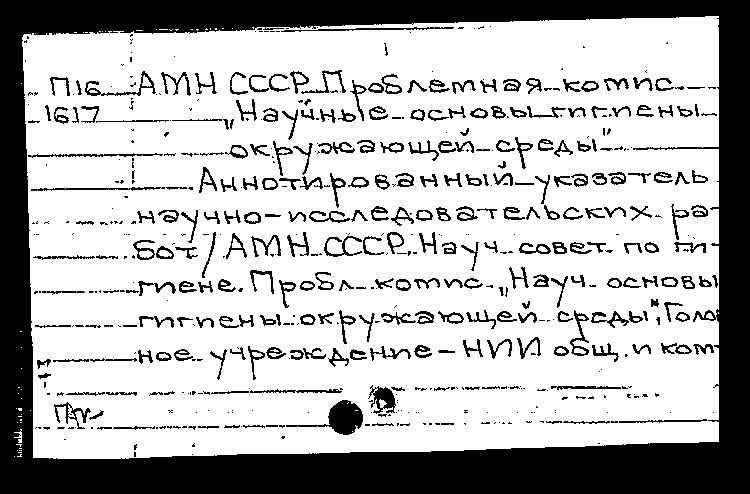 П16 АМН СССР. Проблемная комис.
1617 „Научные основы гигиены
окружающей среды"
Аннотированный указатель
научно-исследовательских ра-
бот / АМН СССР. Науч. совет по ги-
гиене. Пробл. комис. „Науч. основы
гигиены окружающей среды"; Голов-
ное учреждение - НИИ общ. и ком-